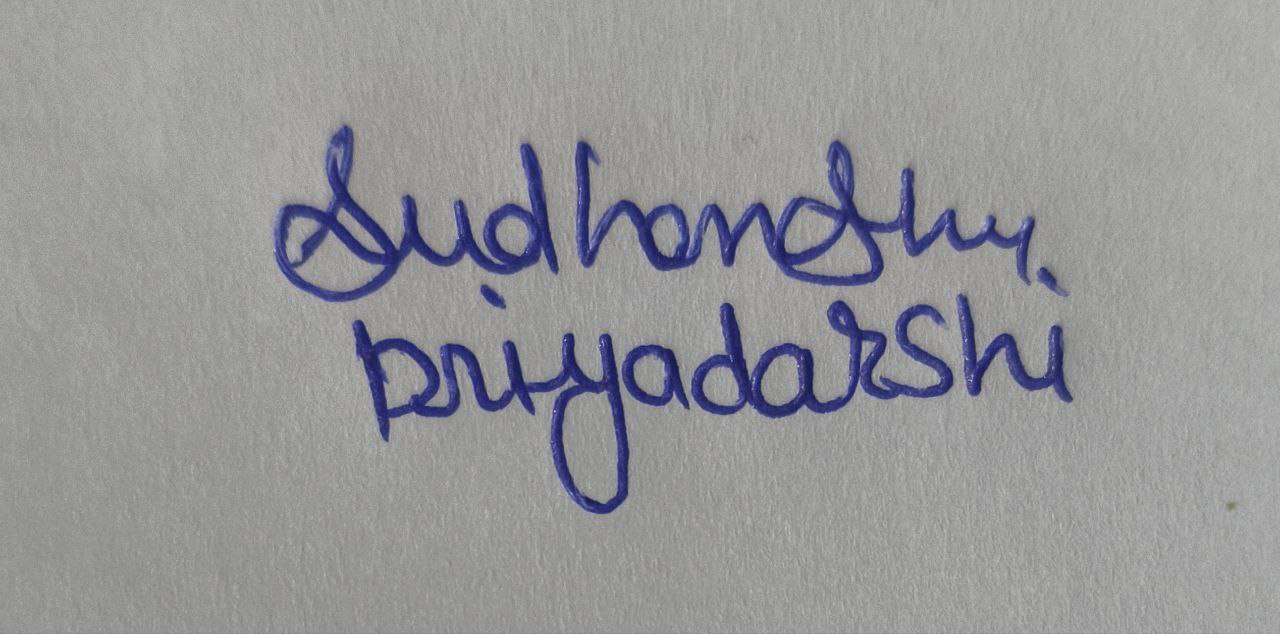 Sudhanshu
Priyadarshi